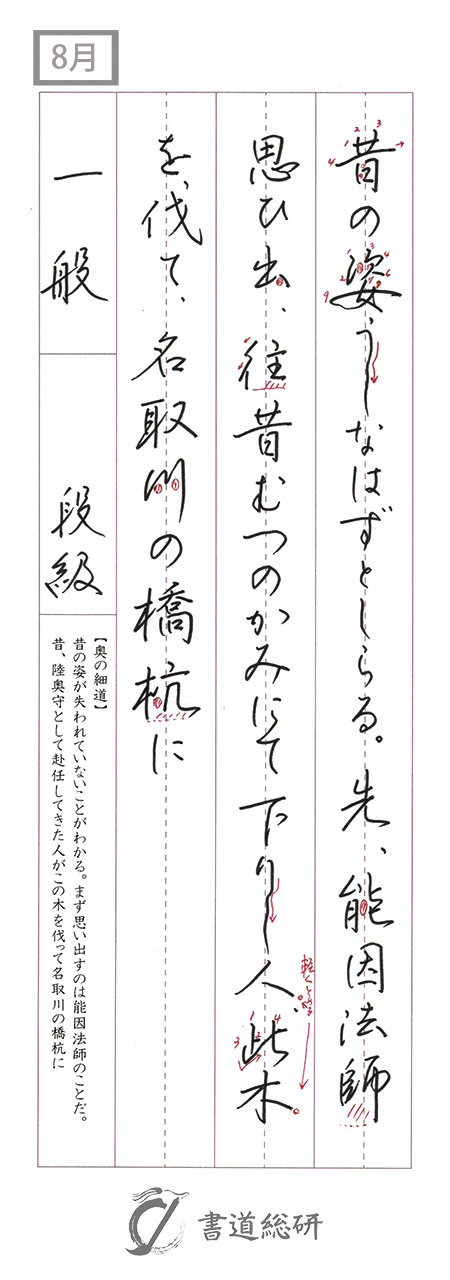 8月
昔の姿うしなはずとしらる。先、能因法師
思ひ出、往昔むつのかみにて下りし人、此木
を伐て、名取川の橋杭に
一般
段級
【奥の細道】
昔の姿が失われていないことがわかる。まず思い出すのは能因法師のことだ。
昔、陸奥守として赴任してきた人がこの木を伐って名取川の橋杭に
書道総研